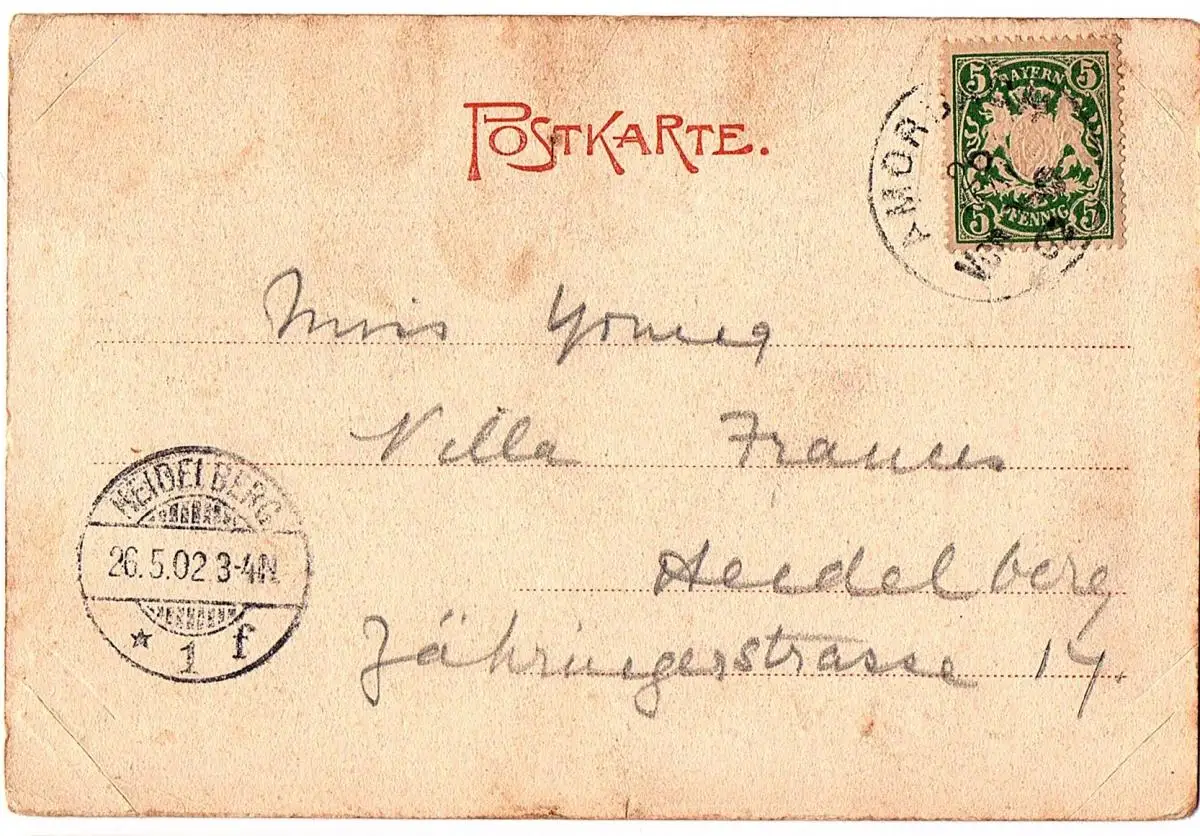 POSTKARTE.
5 BAYERN 5
5 PFENNIG 5
Miss Young
Villa Frances
Heidelberg
Zähringerstrasse 14.
HEIDELBERG
26.5.02 3-4N.
* 1 f